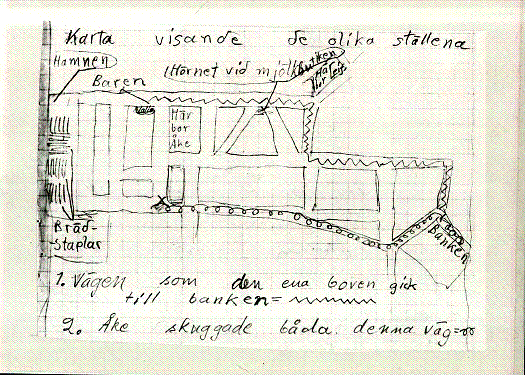 Karta visande de olika ställena
Hamnen
Baren
Hörnet vid mjölkbutiken
Här
bor
Åke
Bräd-
staplar
Banken
1. Vägen som den ena boven gick
till banken=
2. Åke skuggade båda denna väg=